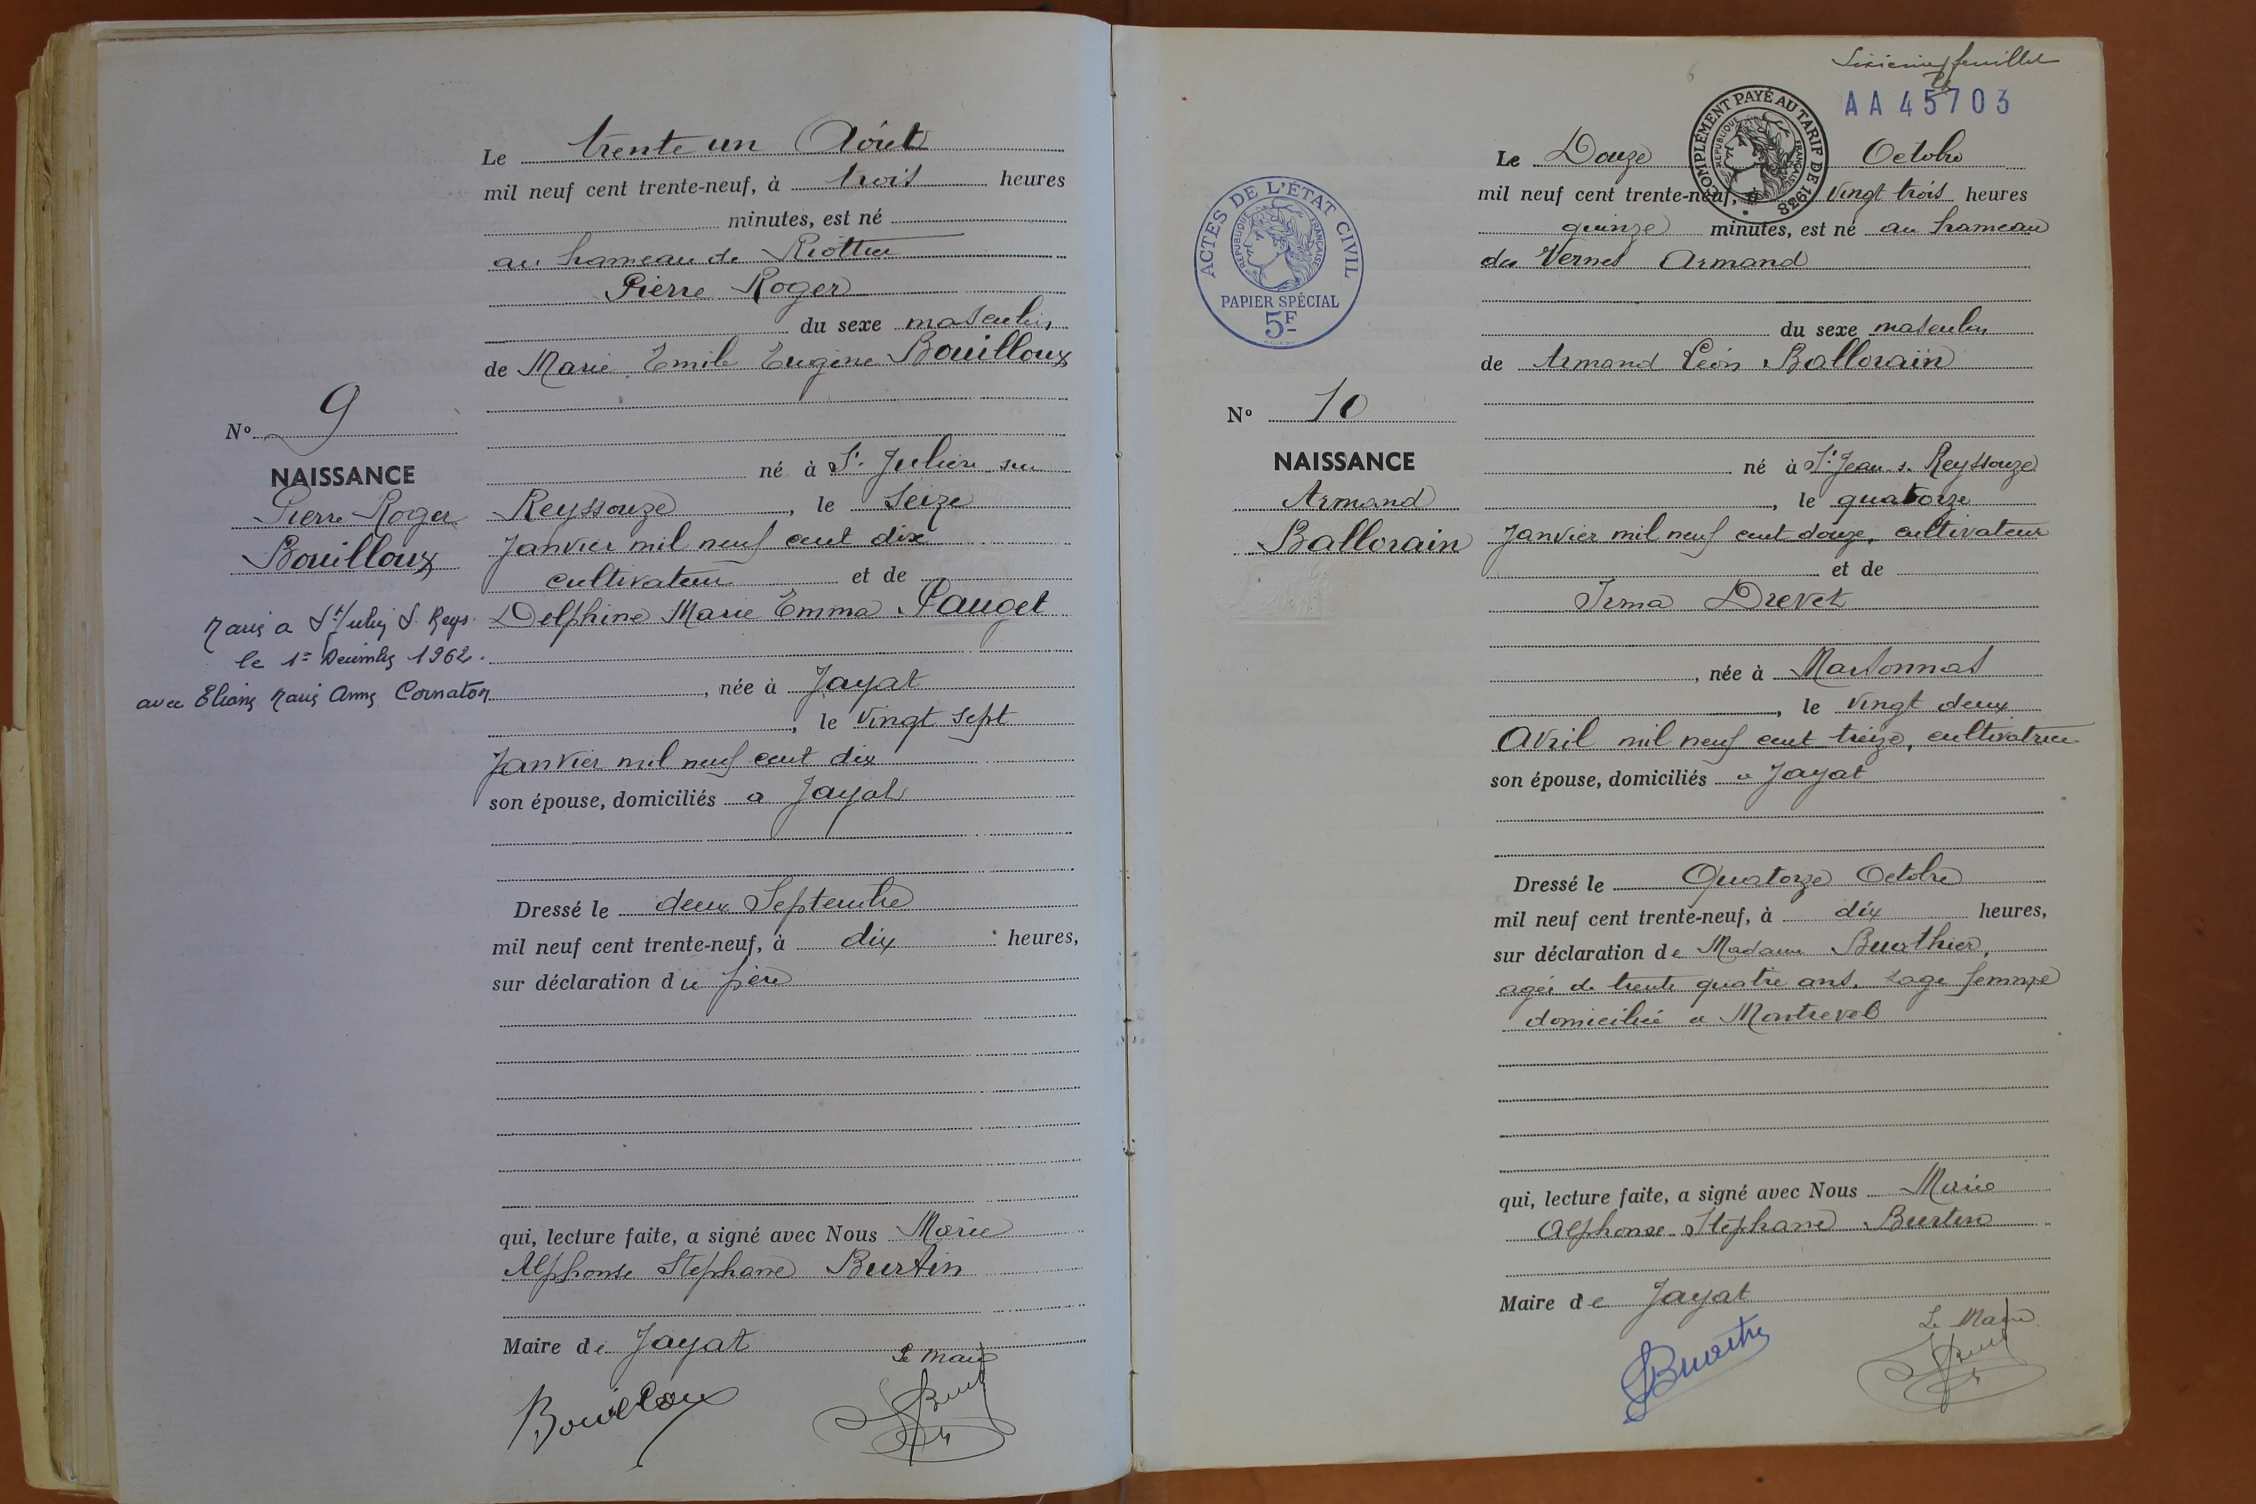 Le trente un Août
mil neuf cent trente-neuf, à trois heures
minutes, est né
au hameau de
Pierre Roger
du sexe masculin
de Marie Emile Eugène Bouilloux
né à St. Julien sur
Reyssouze, le Seize
Janvier mil neuf cent dix
cultivateur et de
Delphine Marie Emma Pauget
, née à Jayat
, le vingt sept
Janvier mil neuf cent dix
son épouse, domiciliés a Jayat
Dressé le deux Septembre
mil neuf cent trente-neuf, à dix heures,
sur déclaration du père
qui, lecture faite, a signé avec Nous Marie
Alphonse Stephane Burtin
Maire de Jayat
Le Maire
Bouilloux
No 9
NAISSANCE
Pierre Roger
Bouilloux
Marié a St Julien S. Reys.
le 1er Décembre 1962.
avec Eliane Marie Anne Cornaton
Sixième feuillet
AA 45703
COMPLÉMENT PAYÉ AU TARIF DE 1938
RÉPUBLIQUE FRANÇAISE
ACTES DE L'ÉTAT CIVIL
RÉPUBLIQUE FRANÇAISE
PAPIER SPÉCIAL
5F
No 10
NAISSANCE
Armand
Ballorain
Le Douze Octobre
mil neuf cent trente-neuf, à vingt trois heures
quinze minutes, est né au hameau
des Vernes Armand
du sexe masculin
de Armand Léon Ballorain
né à St. Jean s. Reyssouze
, le quatorze
Janvier mil neuf cent douze, cultivateur
et de
Irma Drevet
, née à Marsonnas
, le vingt deux
Avril mil neuf cent treize, cultivatrice
son épouse, domiciliés a Jayat
Dressé le Quatorze Octobre
mil neuf cent trente-neuf, à dix heures,
sur déclaration de Madame Buathier,
agée de trente quatre ans, sage femme
domiciliée a Montrevel
qui, lecture faite, a signé avec Nous Marie
Alphonse Stephane Burtin
Maire de Jayat
Le Maire